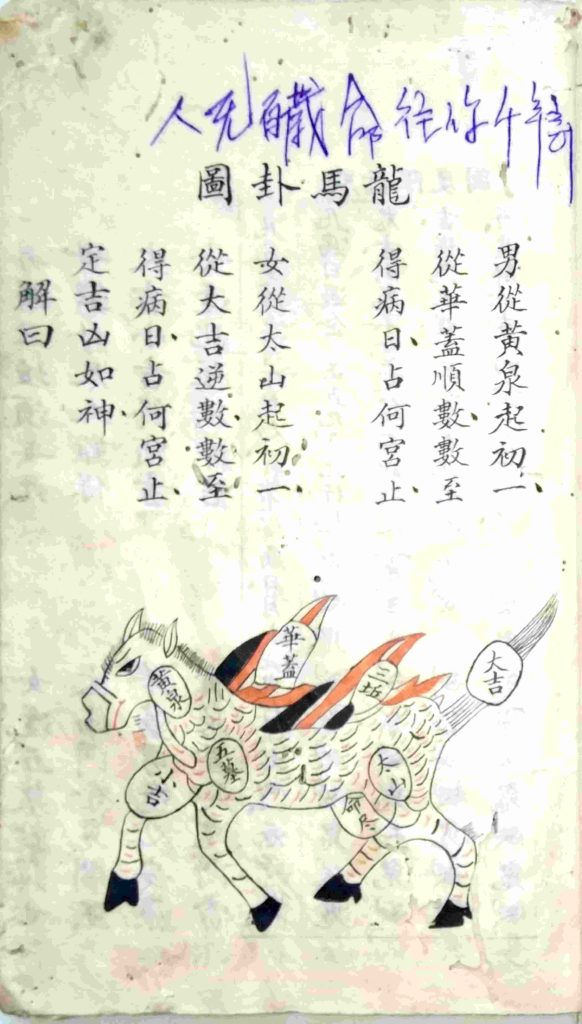 龍馬卦圖
男從黄泉起初一、
從華蓋順數、數至
得病日、占何宮止
女從太山起初一、
從大吉逆數、數至
得病日、占何宮止、
定吉凶如神、
解曰
華蓋
三坵
大吉
黄泉
五墓
太山
命尽